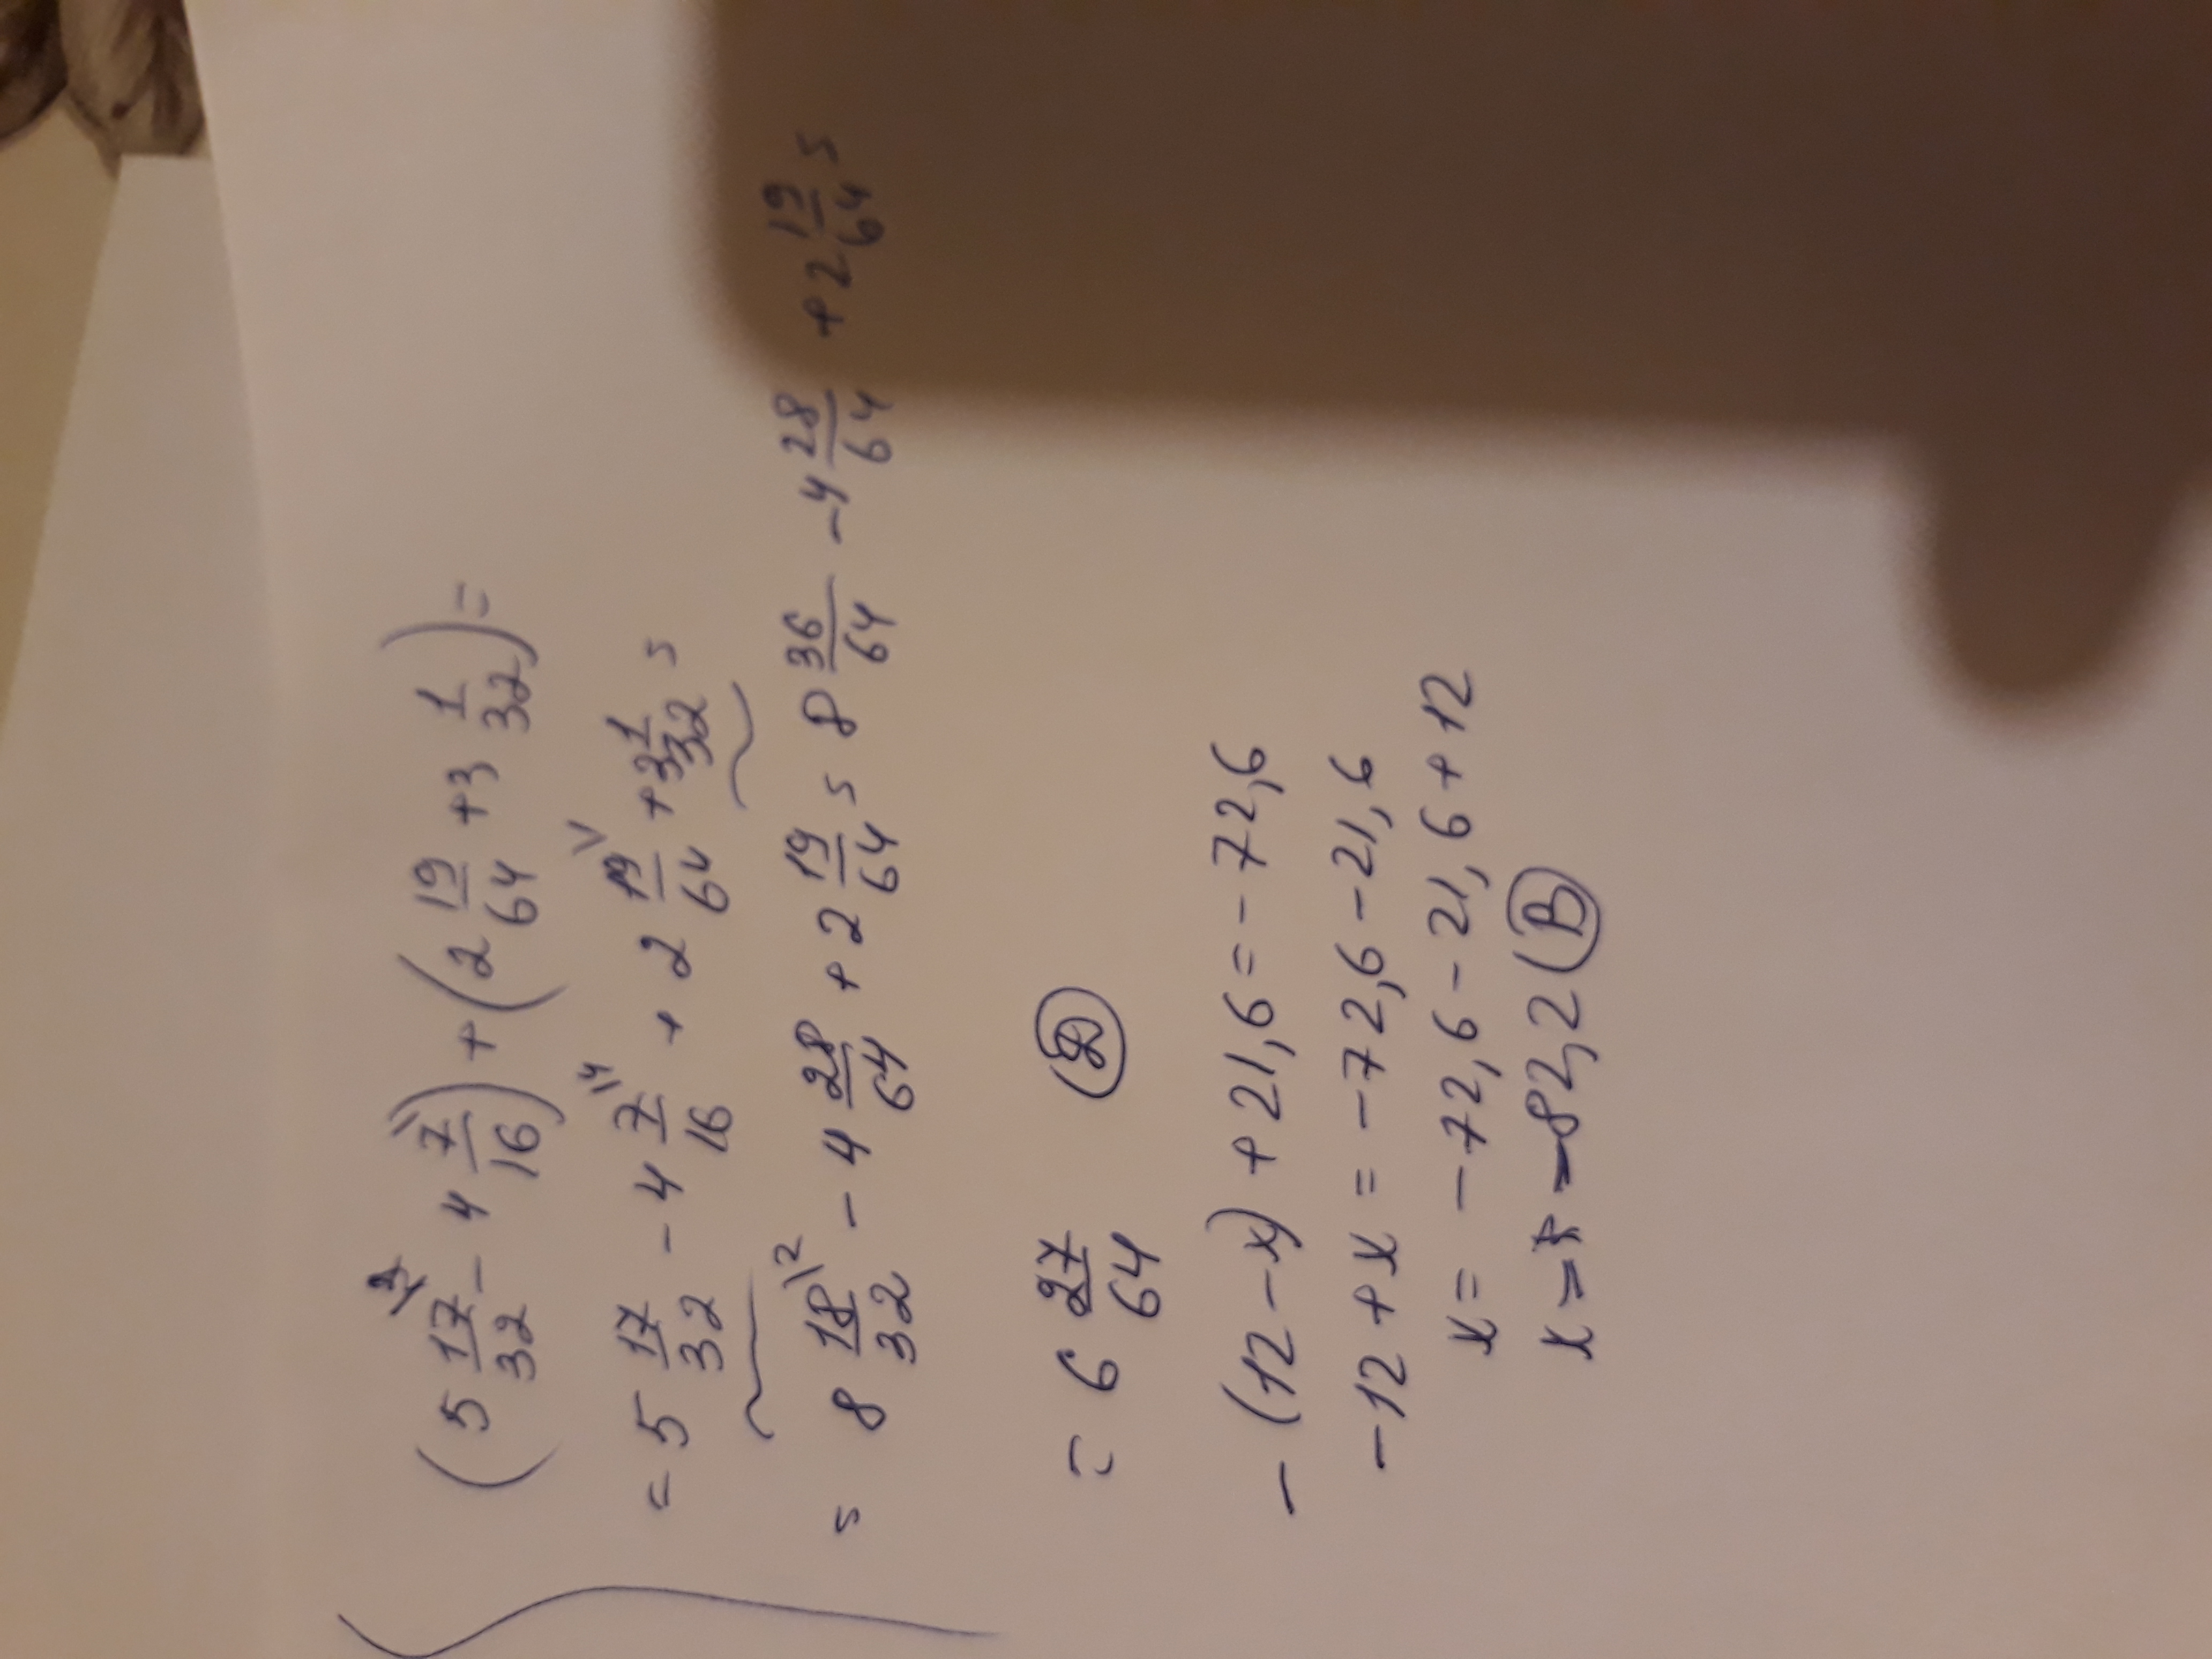 (5 17/32 - 4 7/16) + (2 19/64 + 3 1/32) =
= 5 17/32 - 4 7/16 + 2 19/64 + 3 1/32 =
= 8 18/32 - 4 28/64 + 2 19/64 = 8 36/64 - 4 28/64 + 2 19/64 =
= 6 27/64
- (12 - x) + 21,6 = - 72,6
- 12 + x = - 72,6 - 21,6
x = - 72,6 - 21,6 + 12
x = - 82,2 (В)